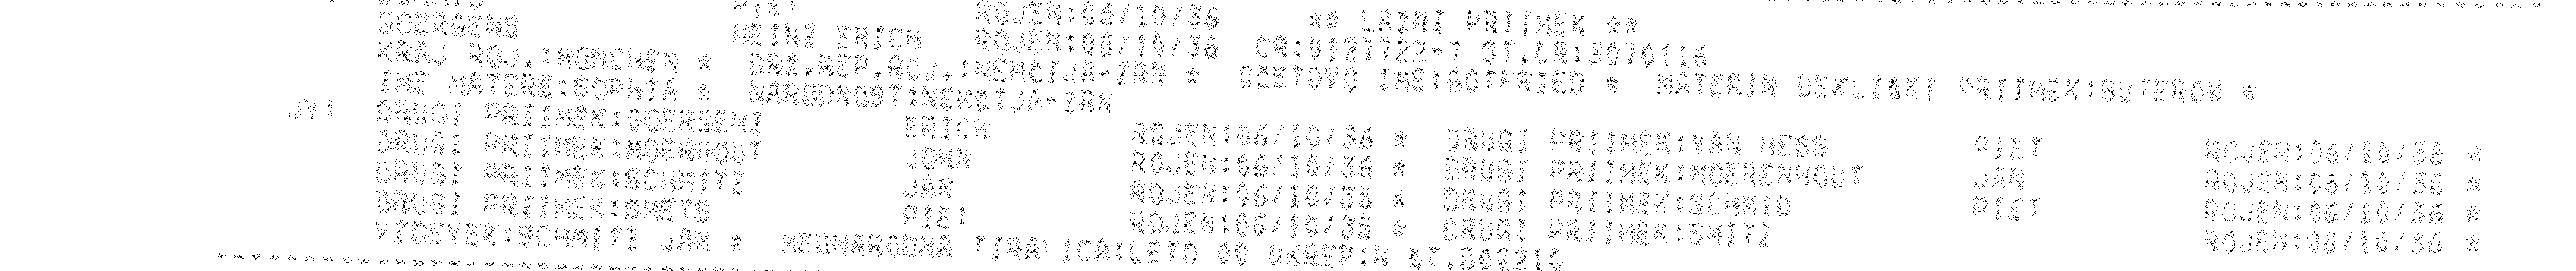 PIET ROJEN:06/10/36 ** LAZNI PRIIMEK **
GOERGENS HEINZ ERICH ROJEN:06/10/36 CR:0127722-7 ST.CR:3070116
KRAJ ROJ.:MONCHEN * DRZ.REP.ROJ.:NEMCIJA-ZRN * OCETOVO IME:GOTFRIED * MATERIN DEKLISKI PRIIMEK:BUTERON *
IME MATERE:SOPHIA * NARODNOST:NEMCIJA-ZRN
JV: DRUGI PRIIMEK:GOERGENZ ERICH ROJEN:06/10/36 * DRUGI PRIIMEK:VAN HESS PIET ROJEN:06/10/36 *
DRUGI PRIIMEK:MOERHOUT JOHN ROJEN:06/10/36 * DRUGI PRIIMEK:MOERENHOUT JAN ROJEN:06/10/36 *
DRUGI PRIIMEK:SCHMITZ JAN ROJEN:06/10/36 * DRUGI PRIIMEK:SCHMID PIET ROJEN:06/10/36 *
DRUGI PRIIMEK:SMETS PIET ROJEN:06/10/36 * DRUGI PRIIMEK:SMITZ ROJEN:06/10/36 *
VZDEVEK:SCHMITZ JAN * MEDNARODNA TIRALICA:LETO 00 UKREP:N ST.D02210